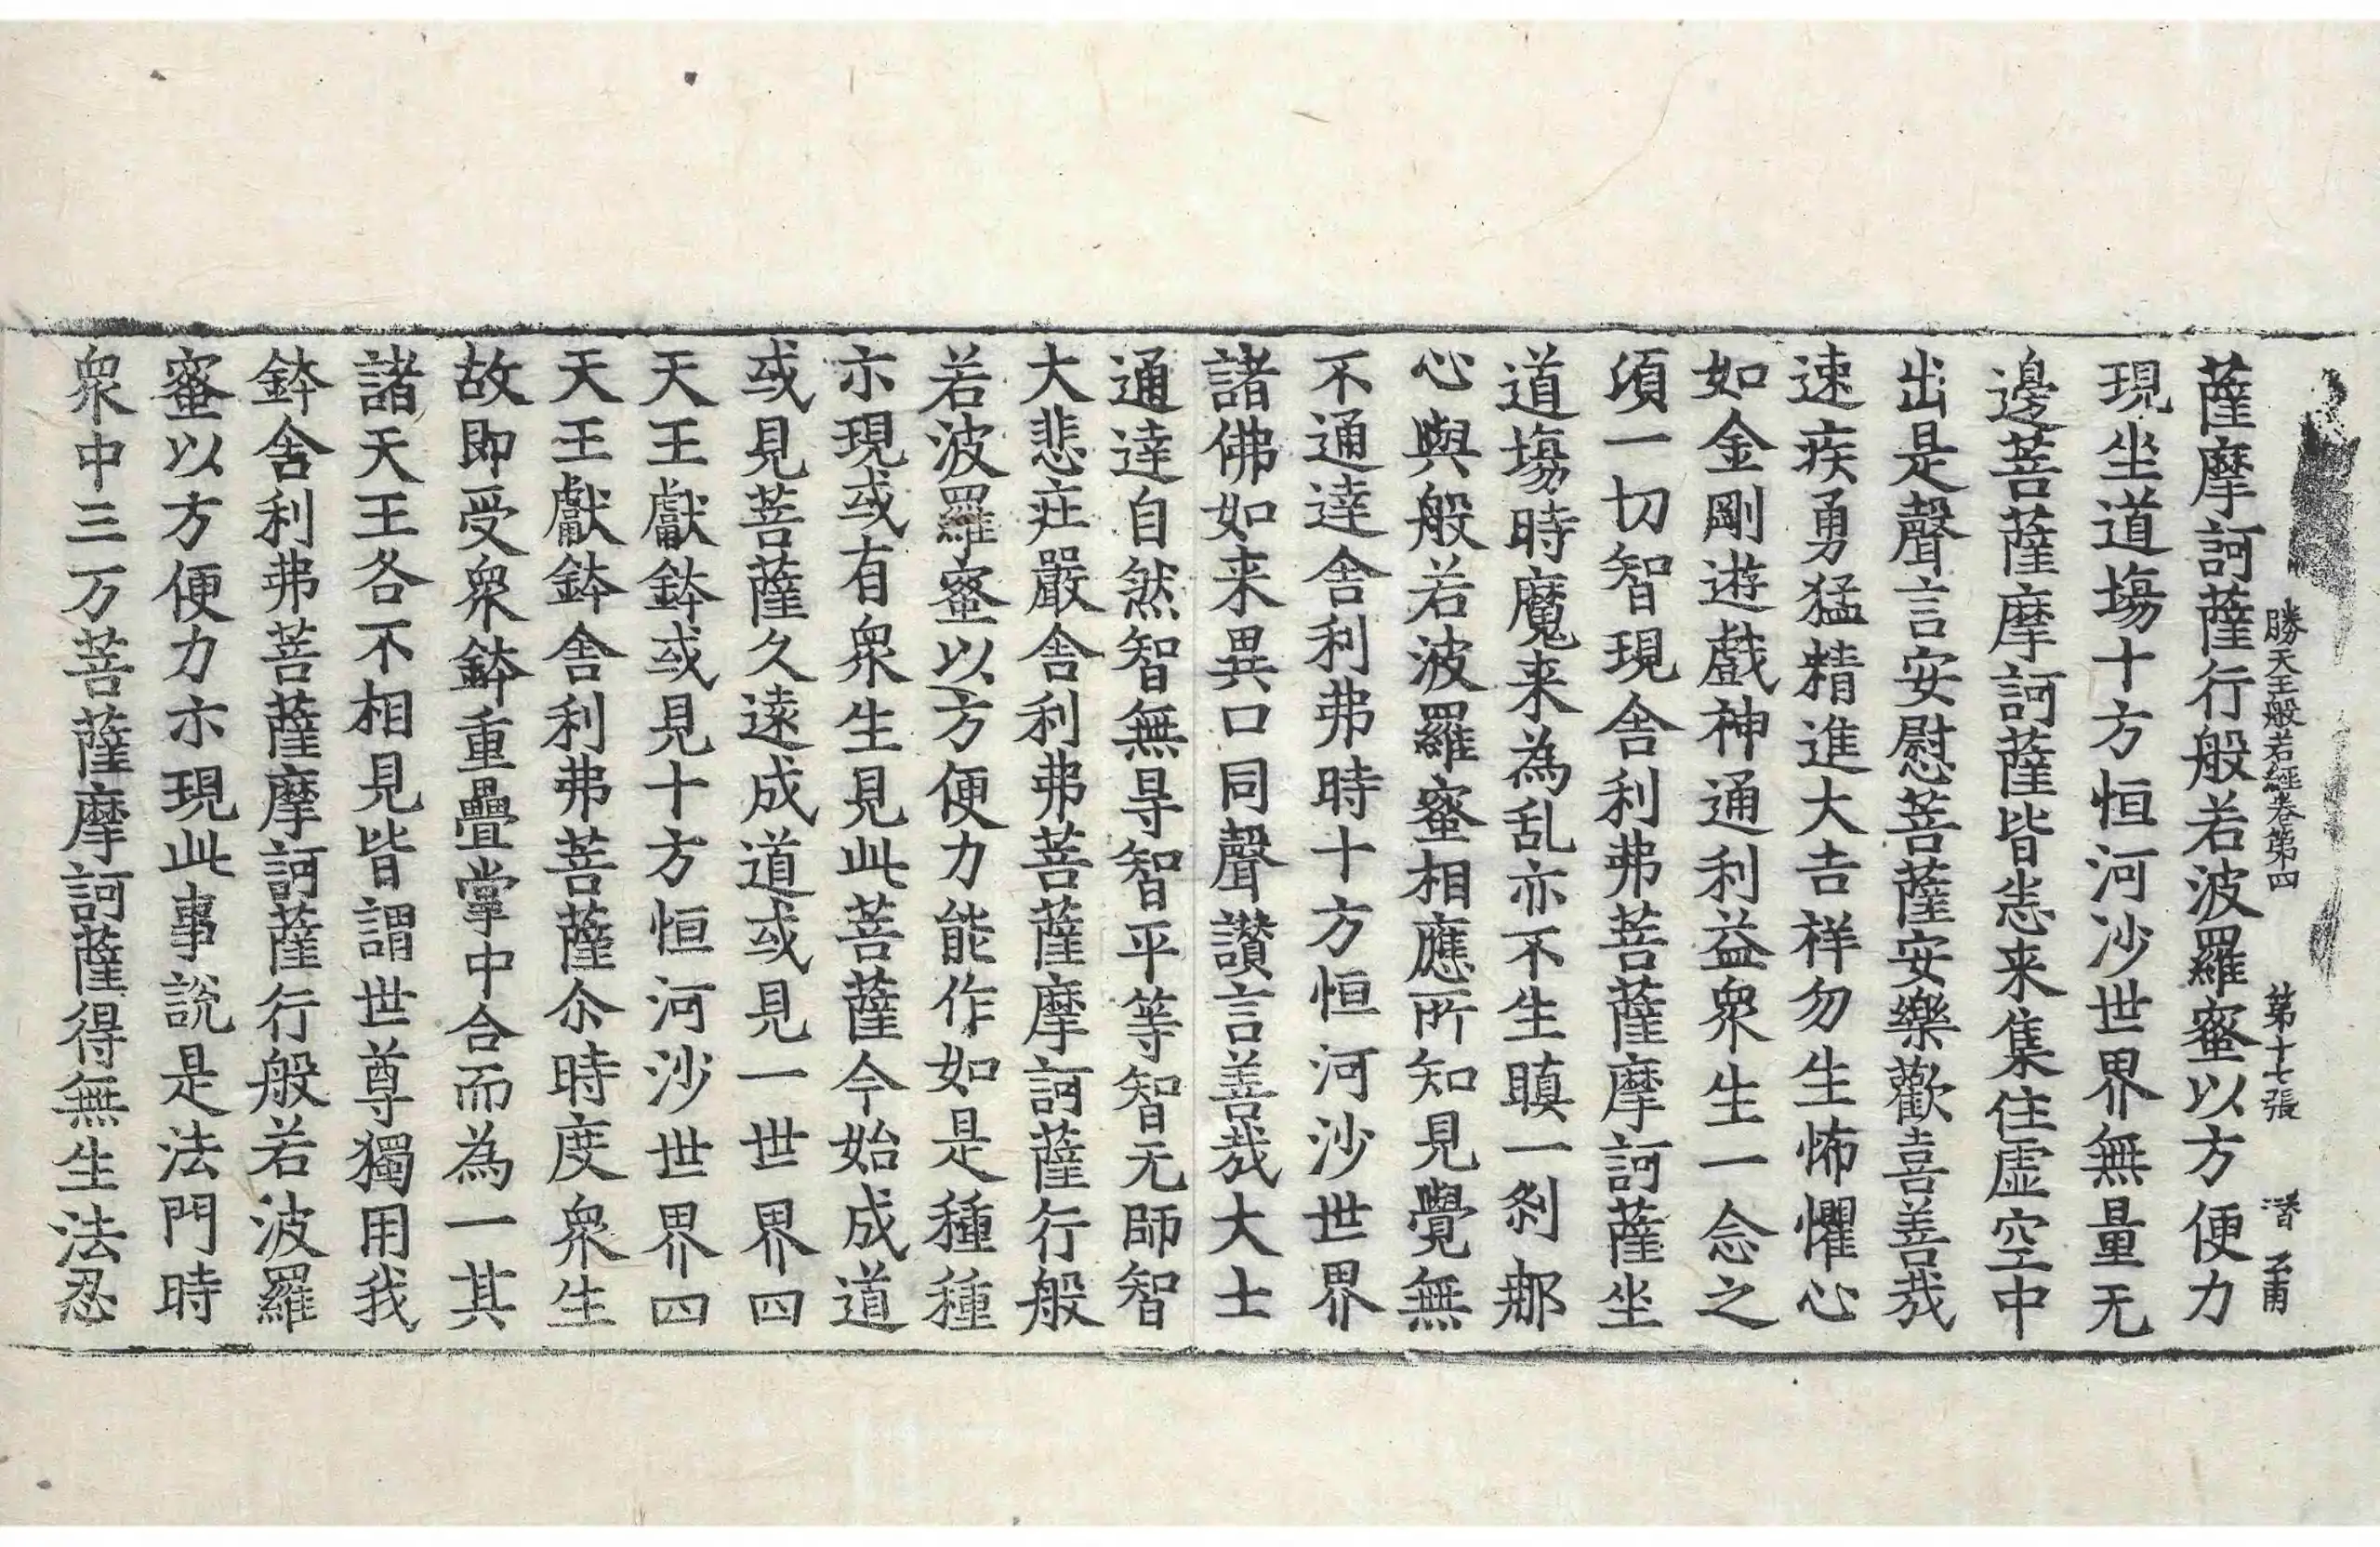 勝天王般若經卷第四 第十七張 潛 孟甫
薩摩訶薩行般若波羅蜜以方便力
現坐道場十方恒河沙世界無量无
邊菩薩摩訶薩皆悉来集住虛空中
出是聲言安慰菩薩安樂歡喜善㢤
速疾勇猛精進大吉祥勿生怖懼心
如金剛遊戲神通利益衆生一念之
須一切智現舍利弗菩薩摩訶薩坐
道場時魔来為乱亦不生瞋一刹那
心與般若波羅蜜相應所知見覺無
不通達舍利弗時十方恒河沙世界
諸佛如来異口同聲讃言善㢤大士
通達自然智無㝵智平等智无師智
大悲莊嚴舍利弗菩薩摩訶薩行般
若波羅蜜以方便力能作如是種種
示現或有衆生見此菩薩今始成道
或見菩薩久遠成道或見一世界四
天王獻鉢或見十方恒河沙世界四
天王獻鉢舍利弗菩薩尒時度衆生
故即受衆鉢重疊掌中合而為一其
諸天王各不相見皆謂世尊獨用我
鉢舍利弗菩薩摩訶薩行般若波羅
蜜以方便力示現此事說是法門時
衆中三万菩薩摩訶薩得無生法忍